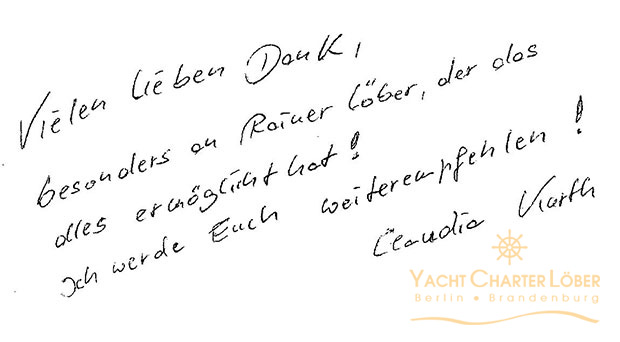 Vielen lieben Dank,
besonders an Rainer Löber, der das
alles ermöglicht hat!
Ich werde Euch weiterempfehlen!
Claudia Kurth
YACHT CHARTER LÖBER
Berlin • Brandenburg